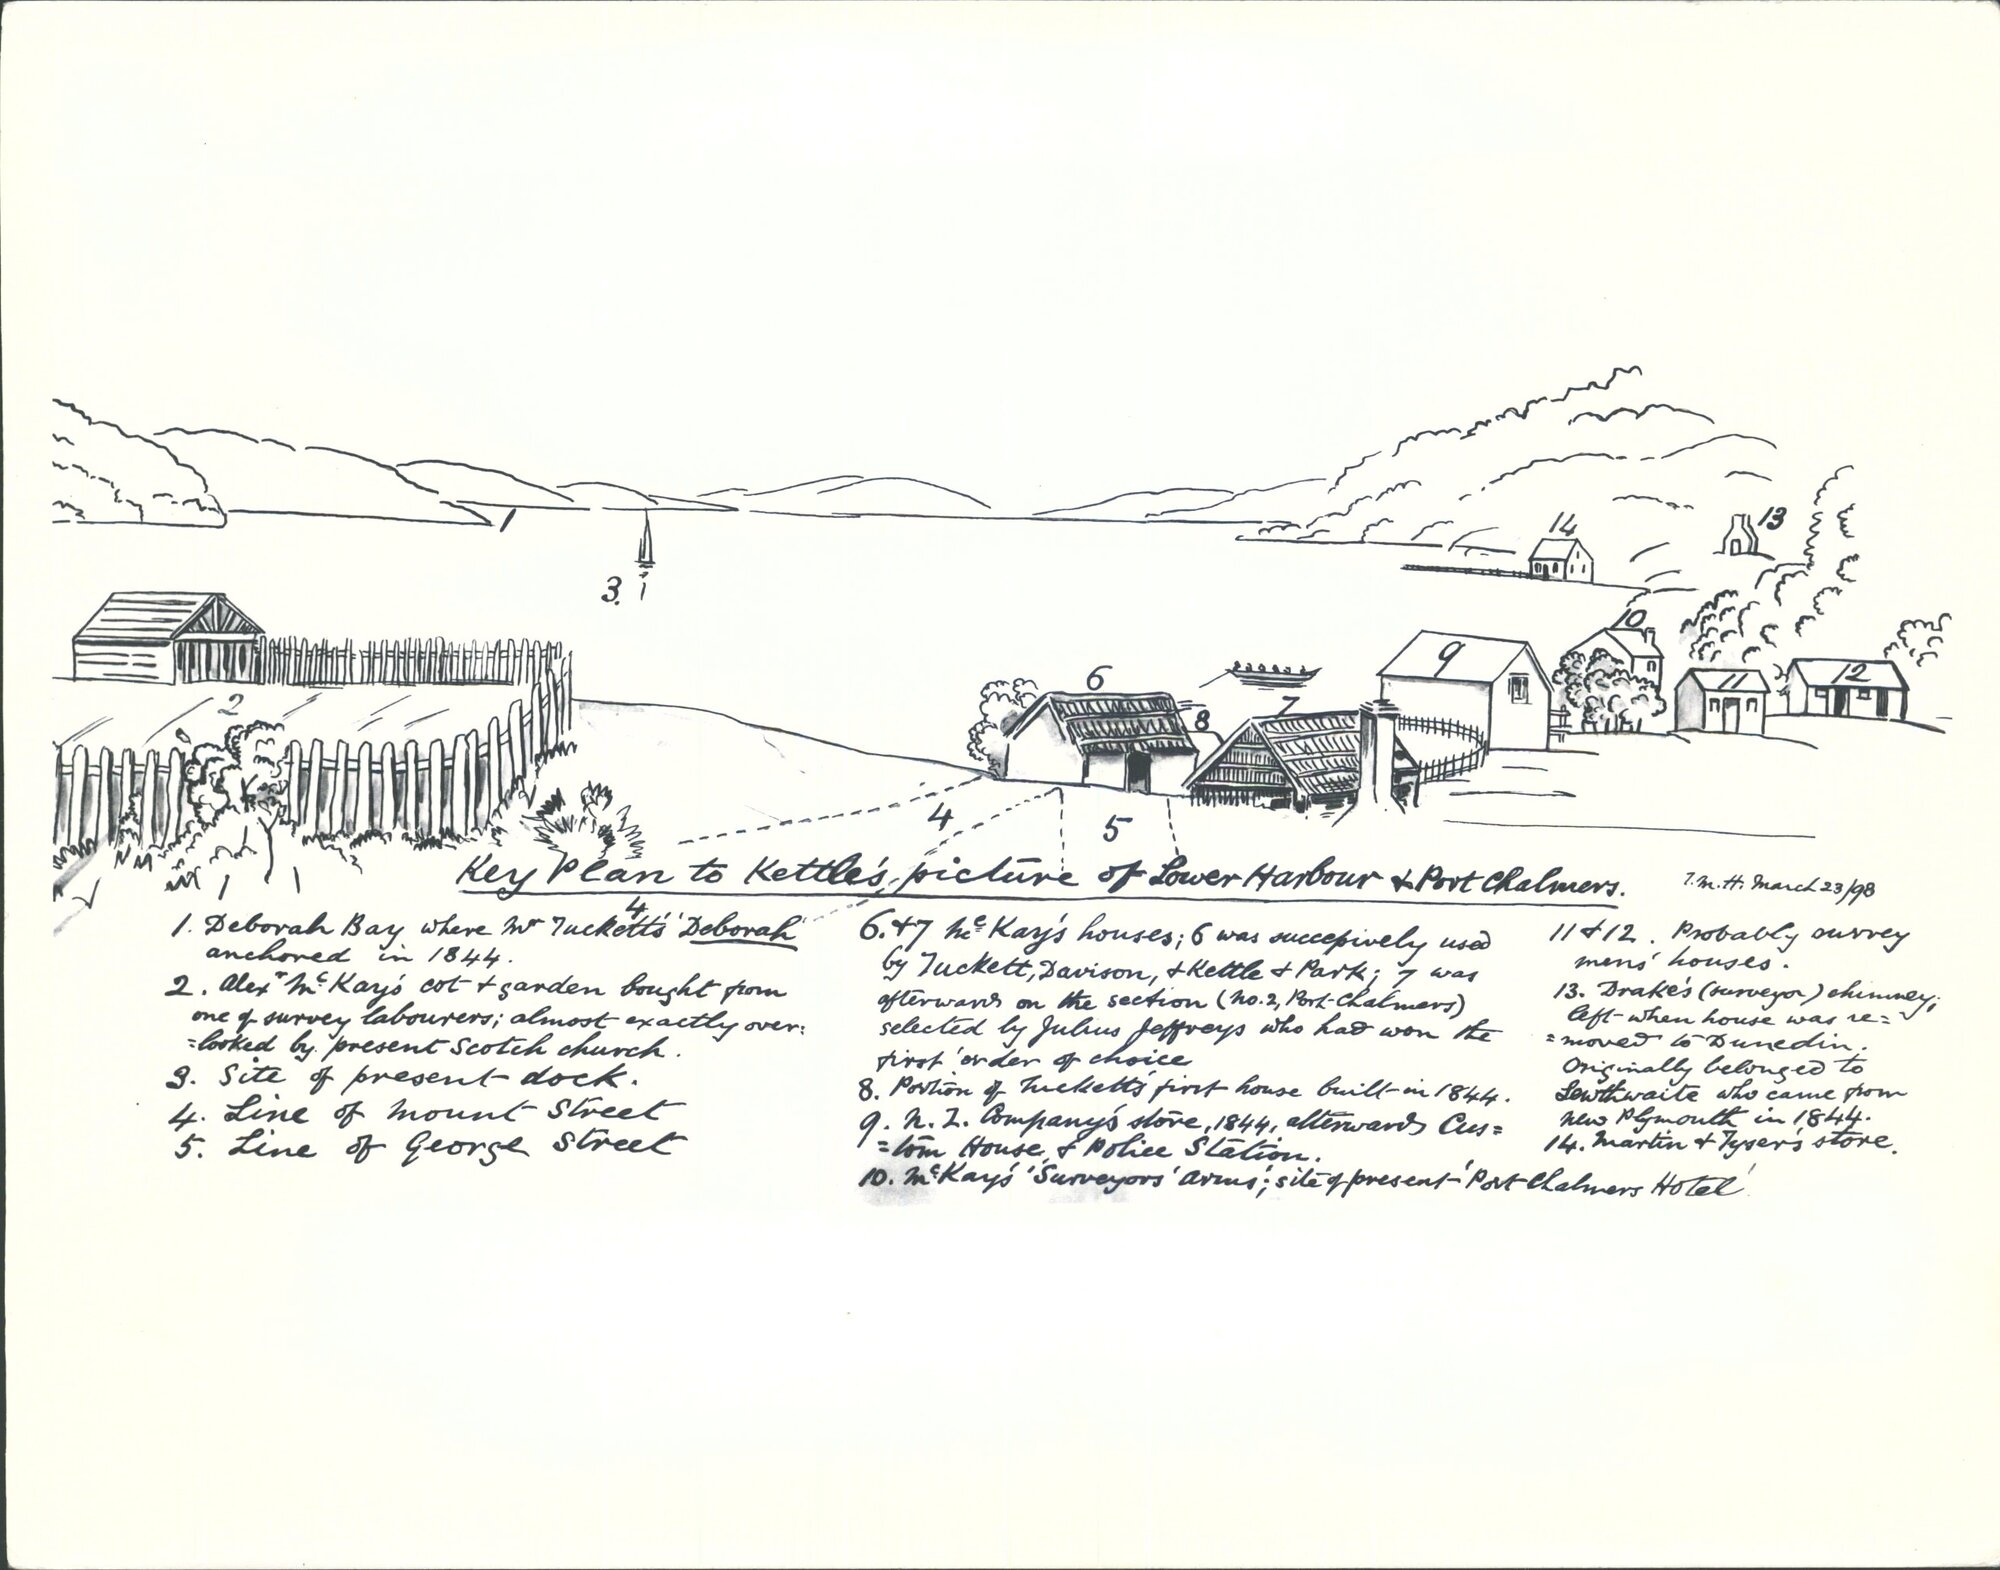 1
3.
14
13
2
10
6
9
8
7
11
12
4
5
Key Plan to Kettle's picture of Lower Harbour & Port Chalmers.
T.M.H. March 23/98
4
1. Deborah Bay where Mr Tuckett's 'Deborah'
anchored in 1844.
2. Alexr McKay's cot & garden bought from
one of survey labourers; almost exactly over:
=looked by present Scotch church.
3. Site of present dock.
4. Line of Mount Street
5. Line of George Street
6. & 7 McKay's houses; 6 was successively used
by Tuckett, Davison, & Kettle & Park; 7 was
afterwards on the section (No. 2, Port-Chalmers)
selected by Julius Jeffreys who had won the
first order of choice
8. Portion of Tuckett's first house built in 1844.
9. N.Z. Company's store, 1844, afterwards Cus=
=tom House & Police Station.
10. McKay's 'Surveyors' Arms'; site of present 'Port Chalmers Hotel'
11 & 12. Probably survey
mens' houses.
13. Drake's (surveyor) chimney;
left when house was re=
=moved to Dunedin.
Originally belonged to
Lewthwaite who came from
New Plymouth in 1844.
14. Martin & Tyser's store.